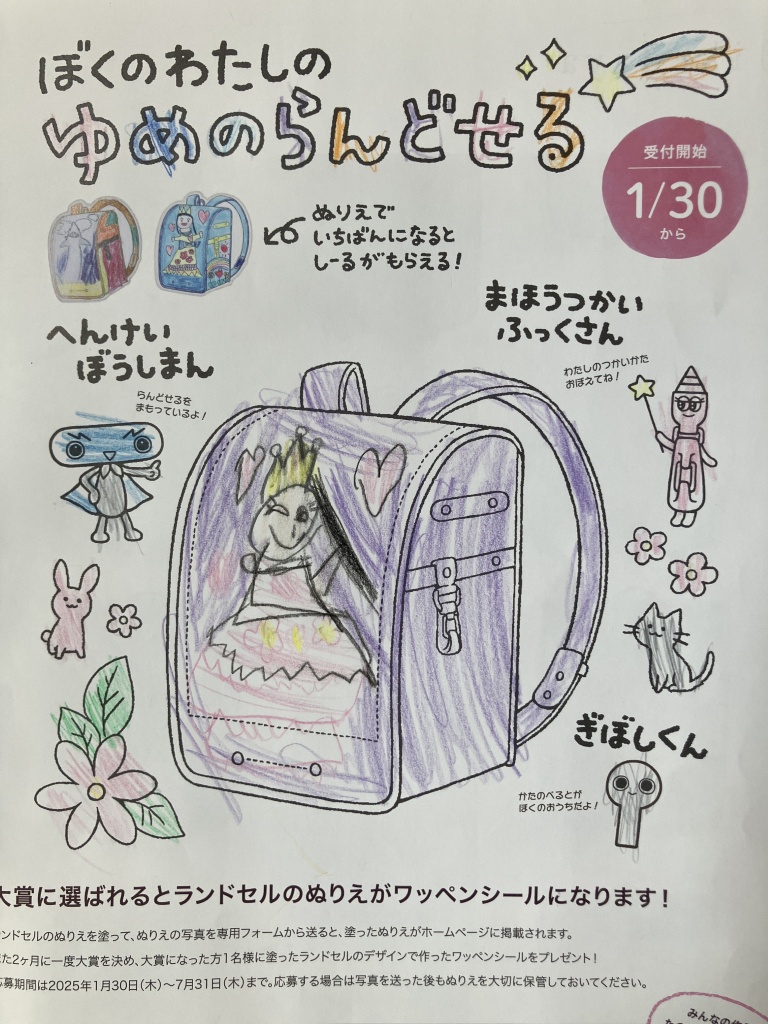 ぼくのわたしの
ゆめのらんどせる
受付開始
1/30
から
ぬりえで
いちばんになると
しーるがもらえる!
まほうつかい
ふっくさん
わたしのつかいかた
おぼえてね!
へんけい
ぼうしまん
らんどせるを
まもっているよ!
ぎぼしくん
かたのべるとが
ぼくのおうちだよ!
大賞に選ばれるとランドセルのぬりえがワッペンシールになります!
ンドセルのぬりえを塗って、ぬりえの写真を専用フォームから送ると、塗ったぬりえがホームページに掲載されます。
た2ヶ月に一度大賞を決め、大賞になった方1名様に塗ったランドセルのデザインで作ったワッペンシールをプレゼント!
募期間は2025年1月30日(木)〜7月31日(木)まで。応募する場合は写真を送った後もぬりえを大切に保管しておいてください。
みんなの